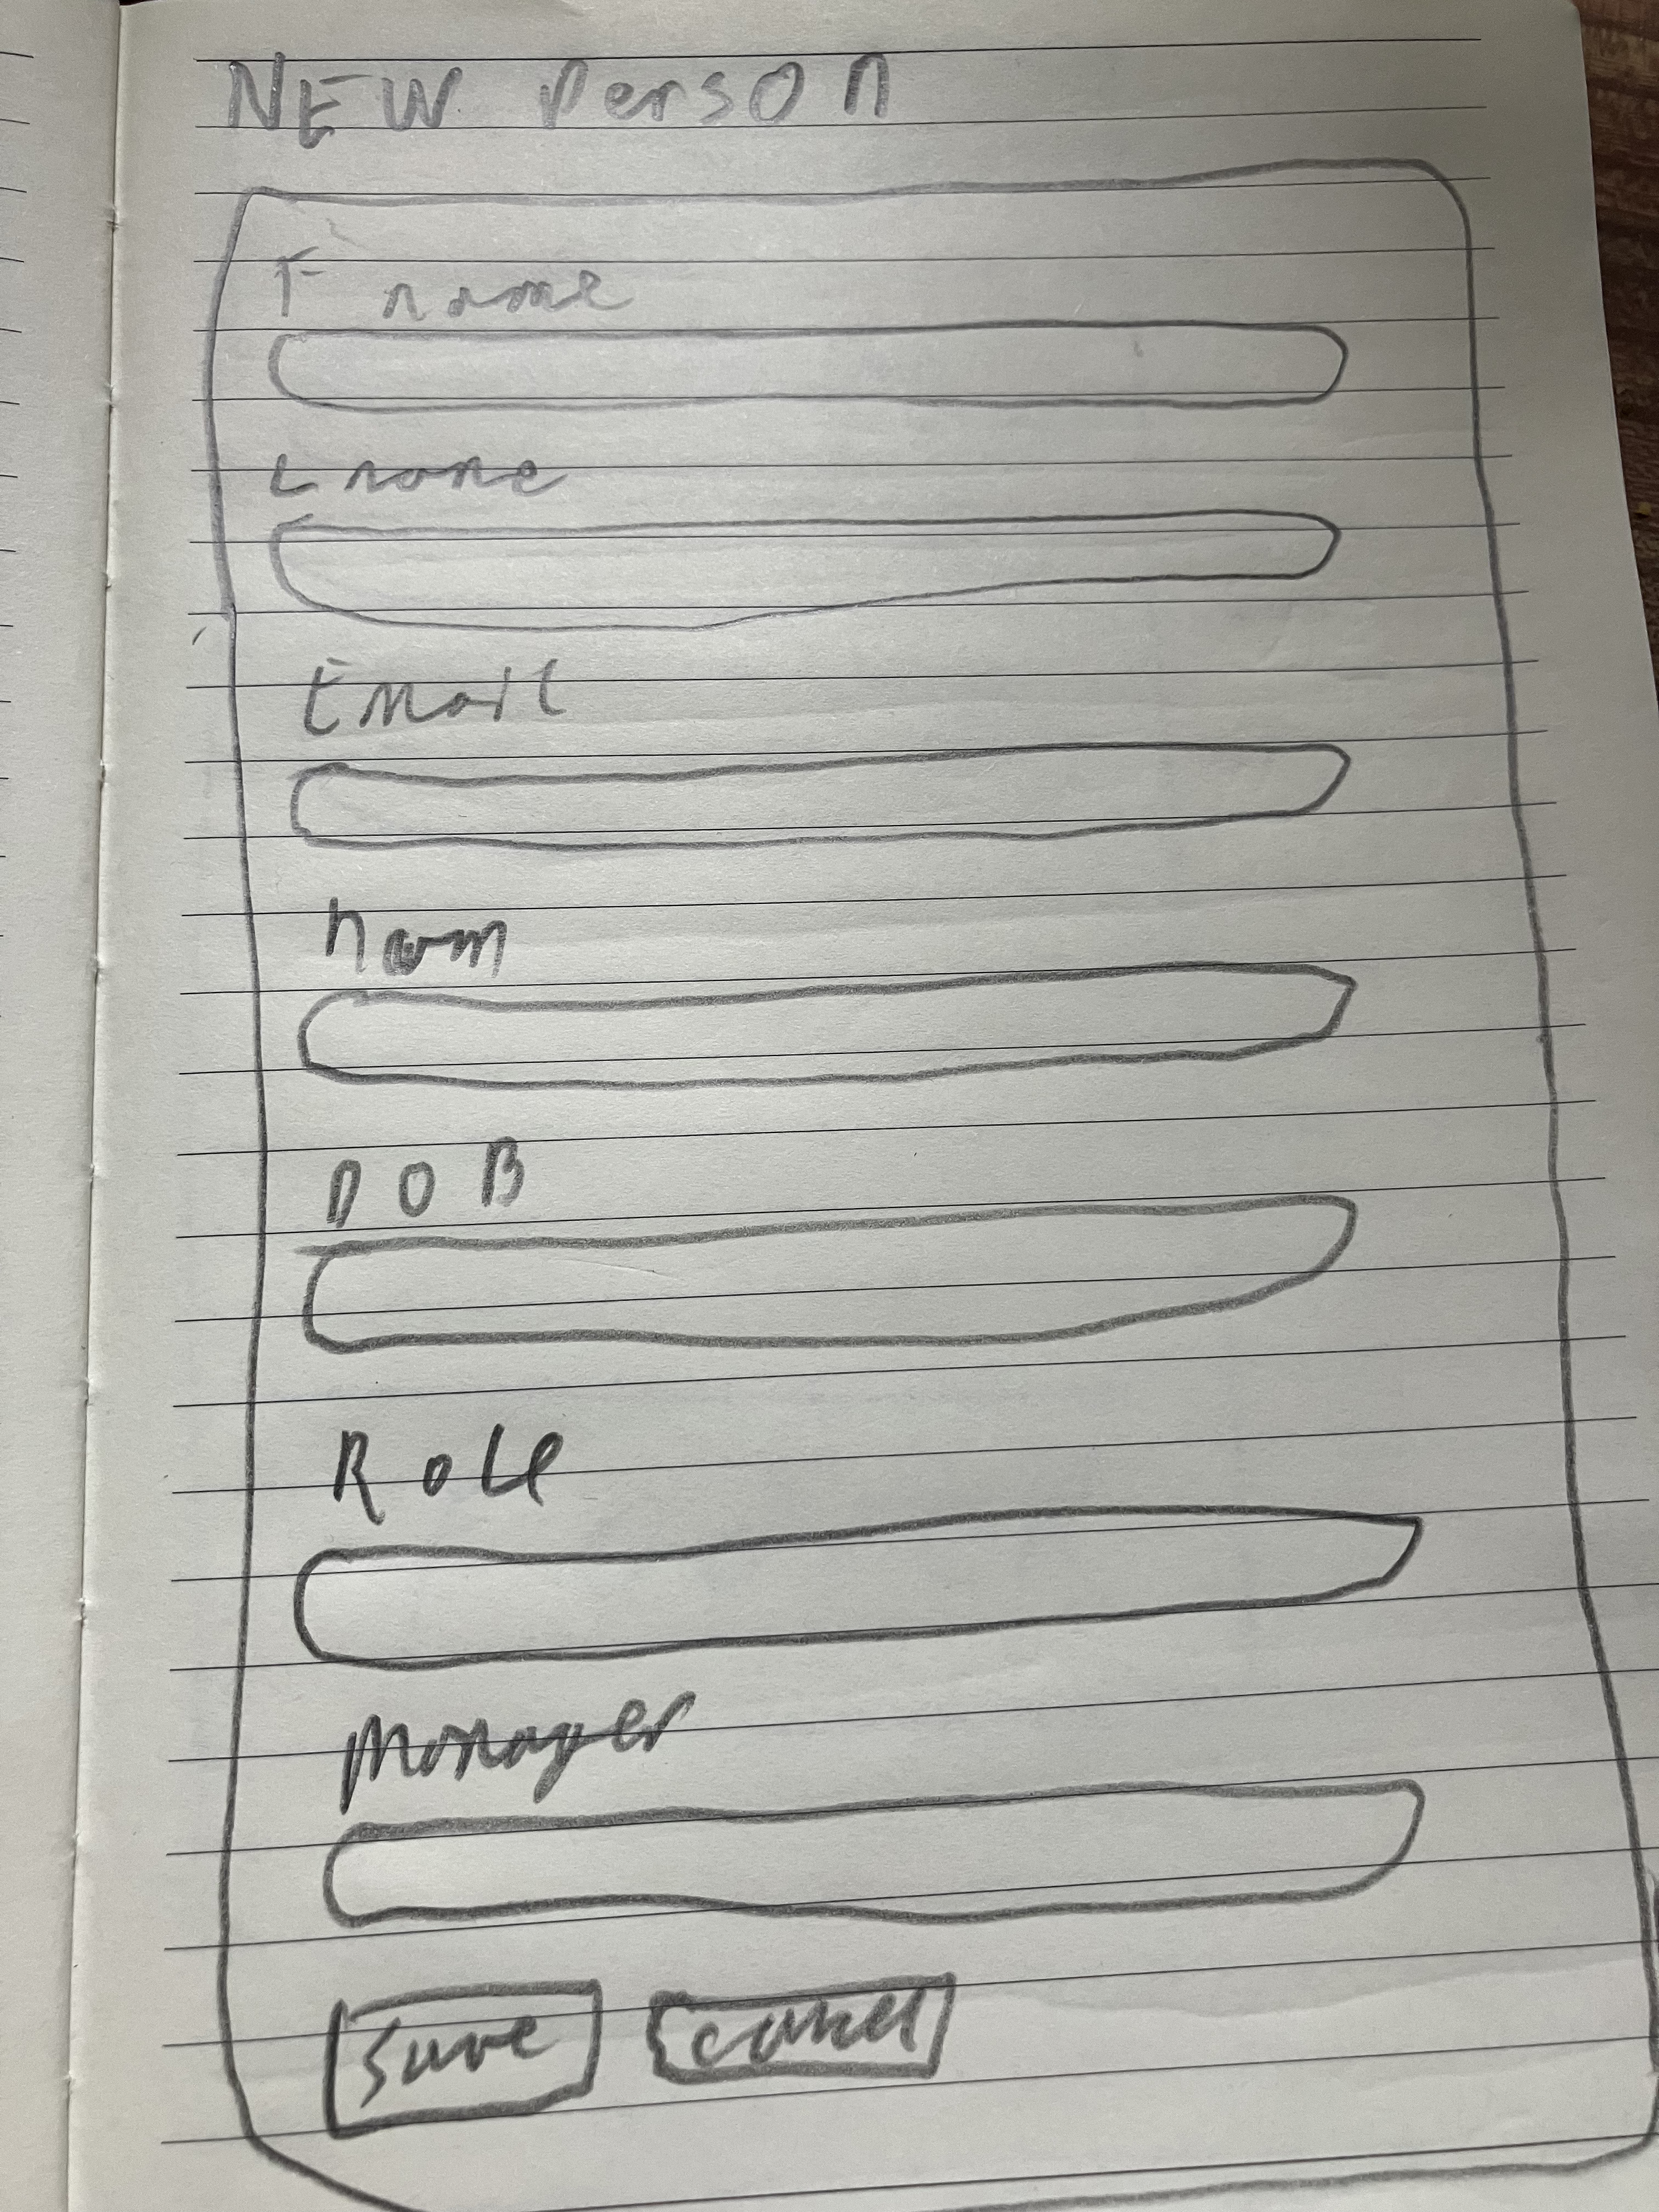 NEW Person
F name
L name
Email
DOB
Role
Manager
Save Cancel